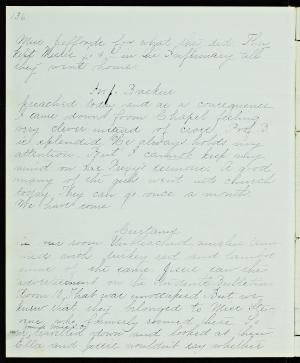 136
Miss Pefforde for what they did. They
kept Minnie in the Infirmary till
they went home.
Prof. Backus
preached today and as a consequence
I came down from Chapel feeling
very clever instead of cross. Prof. B
is splendid. He always holds my
attention. But I cannot keep my
mind on the Prex's sermons. A good
many of the girls went into church
today. They can go once a month.
We have some
Curtains
in our room. Unbleached muslin trim-
med with turkey red and
some of the same. Jessie saw the
advertisement on the Students Bulletin
Room J. That was unoccupied. But we
knew that they belonged to Miss
who formerly roomed here. So
we traveled down and looked at them
Ella and Jessie wouldn't say whether